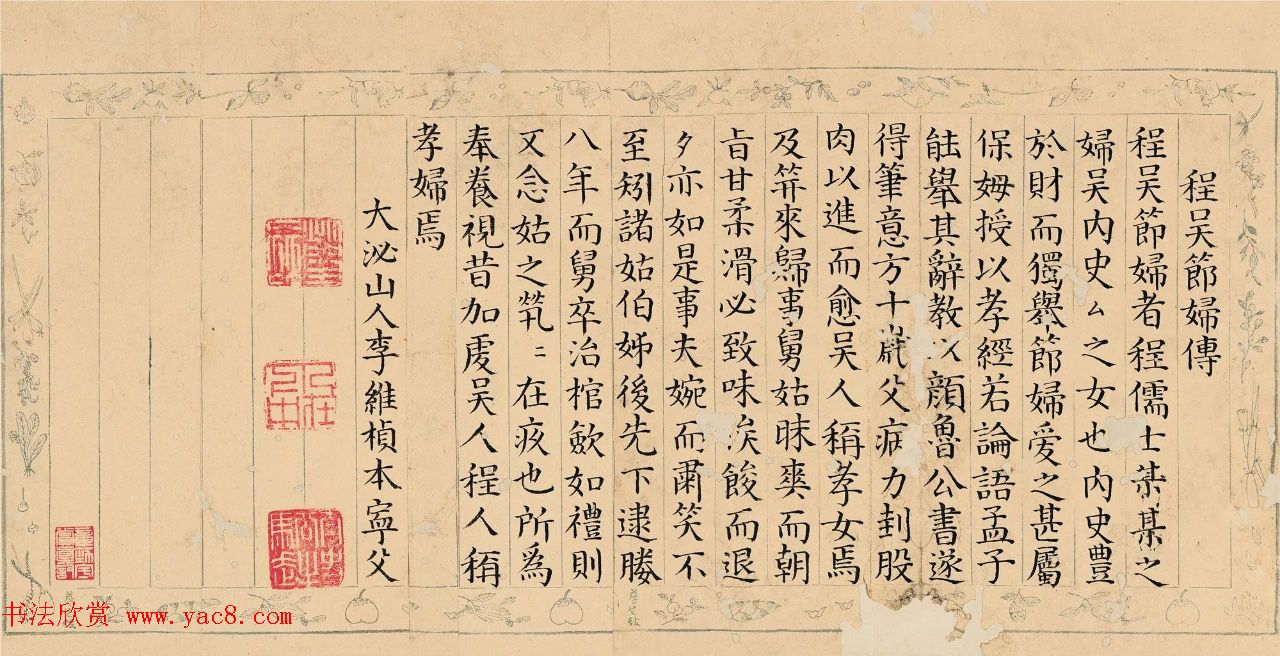 程吳節婦傳
程吳節婦者程儒士某某之
婦吳内史厶之女也内史豊
於財而獨舉節婦爱之甚屬
保姆授以孝經若論語孟子
能舉其辭教以顔魯公書遂
得筆意方十歲父病力刲股
肉以進而愈吳人稱孝女焉
及笄來歸事舅姑昧爽而朝
旨甘柔滑必致味涘餕而退
夕亦如是事夫婉而肅笑不
至矧諸姑伯姊後先下逮媵
八年而舅卒治棺歛如禮則
又念姑之煢〻在疚也所爲
奉養視昔加虔吳人程人稱
孝婦焉
大泌山人李維楨本寧父
书法欣赏 www.yac8.com